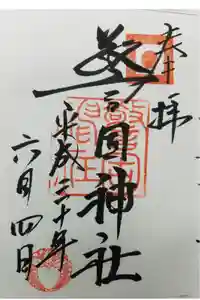 奉拝
警固神社
平成三十年
六月四日